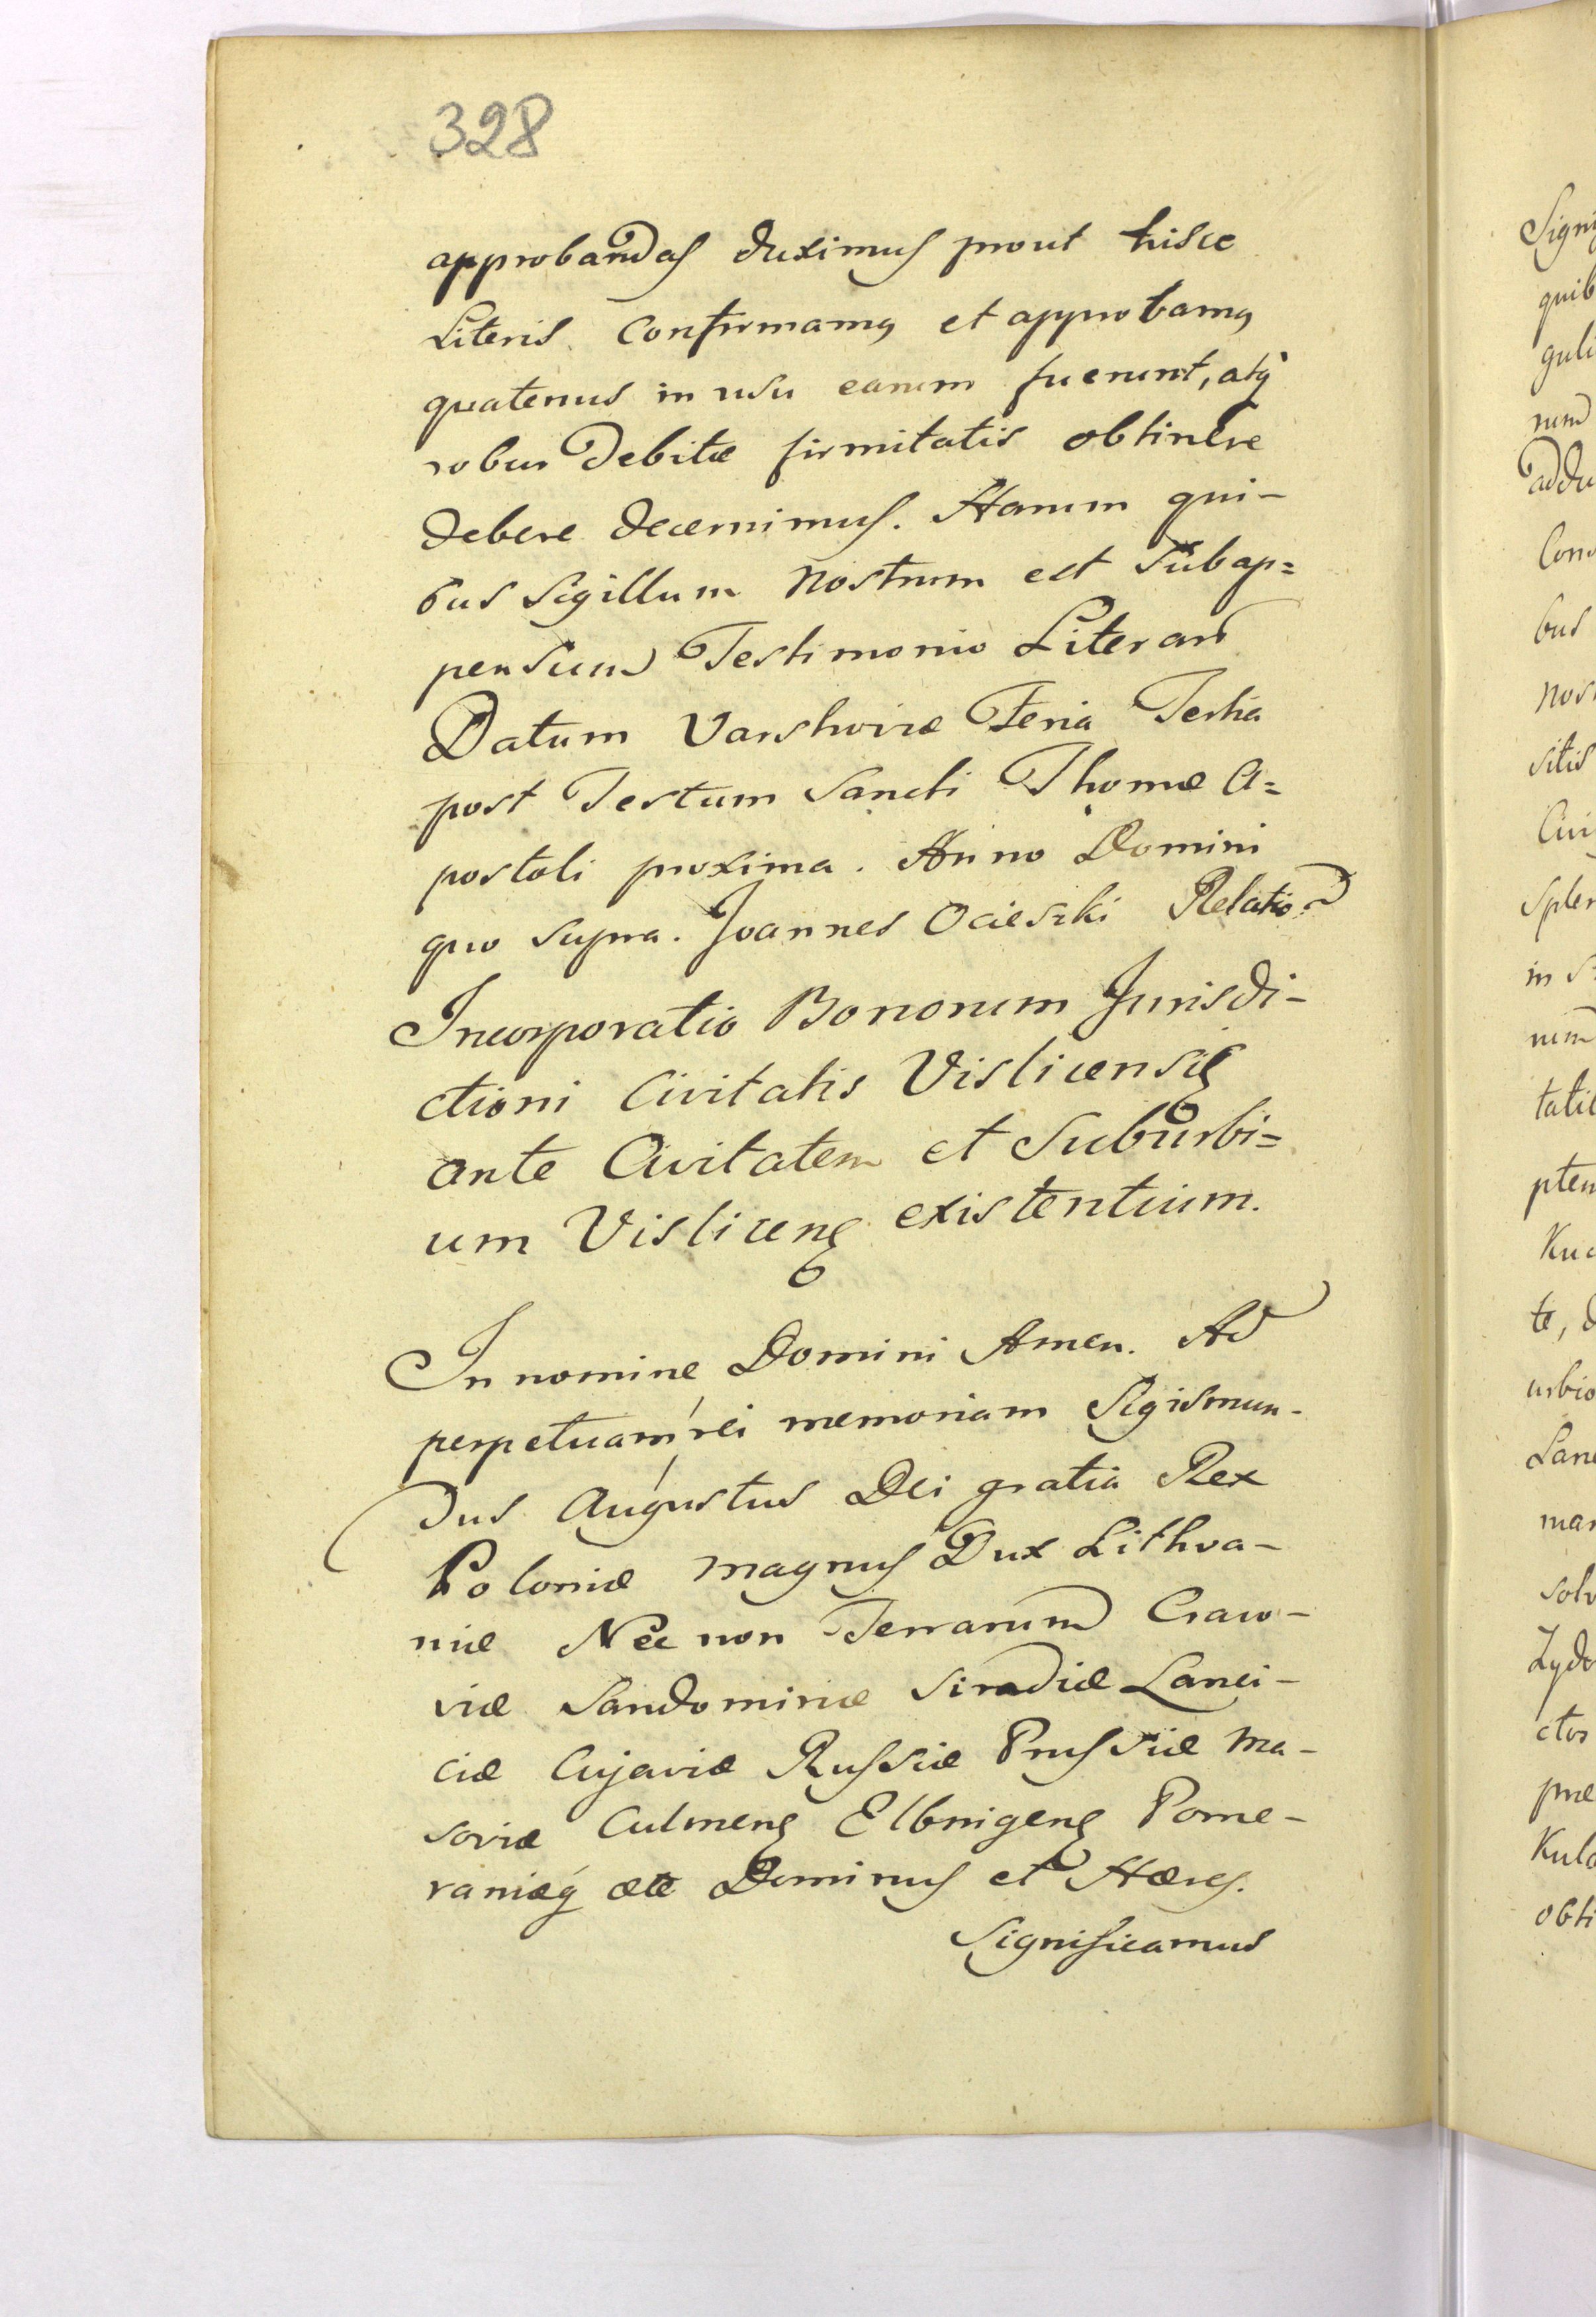 328
approbandas duximus prout hisce
Literis Confirmamq et approbamq
quatenus in usu earum fuerunt, atq
robur debitæ firmitatis obtinere
debere decernimus. Harum qui-
bus Sigillum Nostrum est Subap=
pensum Testimonio Literarū
Datum Varshviæ Feria Tertia
post Festum Sancti Thomæ A=
postoli proxima. Anno Domini
quo supra. Joannes Ocieszki Relatio
Incorporatio Bonorum Jurisdi-
ctioni Civitatis Vislicensis
ante Civitatem et Suburbi=
um Vislicens existentium.
In nomine Domini Amen. Ad
perpetuam rei memoriam Sigismun-
dus Augustus Dei gratia Rex
Poloniæ Magnus Dux Lithva-
niæ Nec non Terrarum Craco-
viæ Sandomiriæ Siradiæ Lanci-
ciæ Cujaviæ Russiæ Prussiæ Ma-
soviæ Culmens Elbnigens Pome-
raniæq ætc Dominus et Hæres.
Significamus
Signi
quib
guli
rum
addu
bus
nos
sitis
Civi
Splen
in S
num
tatis
ptem
te, d
urbio
Lane
man
solv
Zydo
ctos
præ
Kula
obti